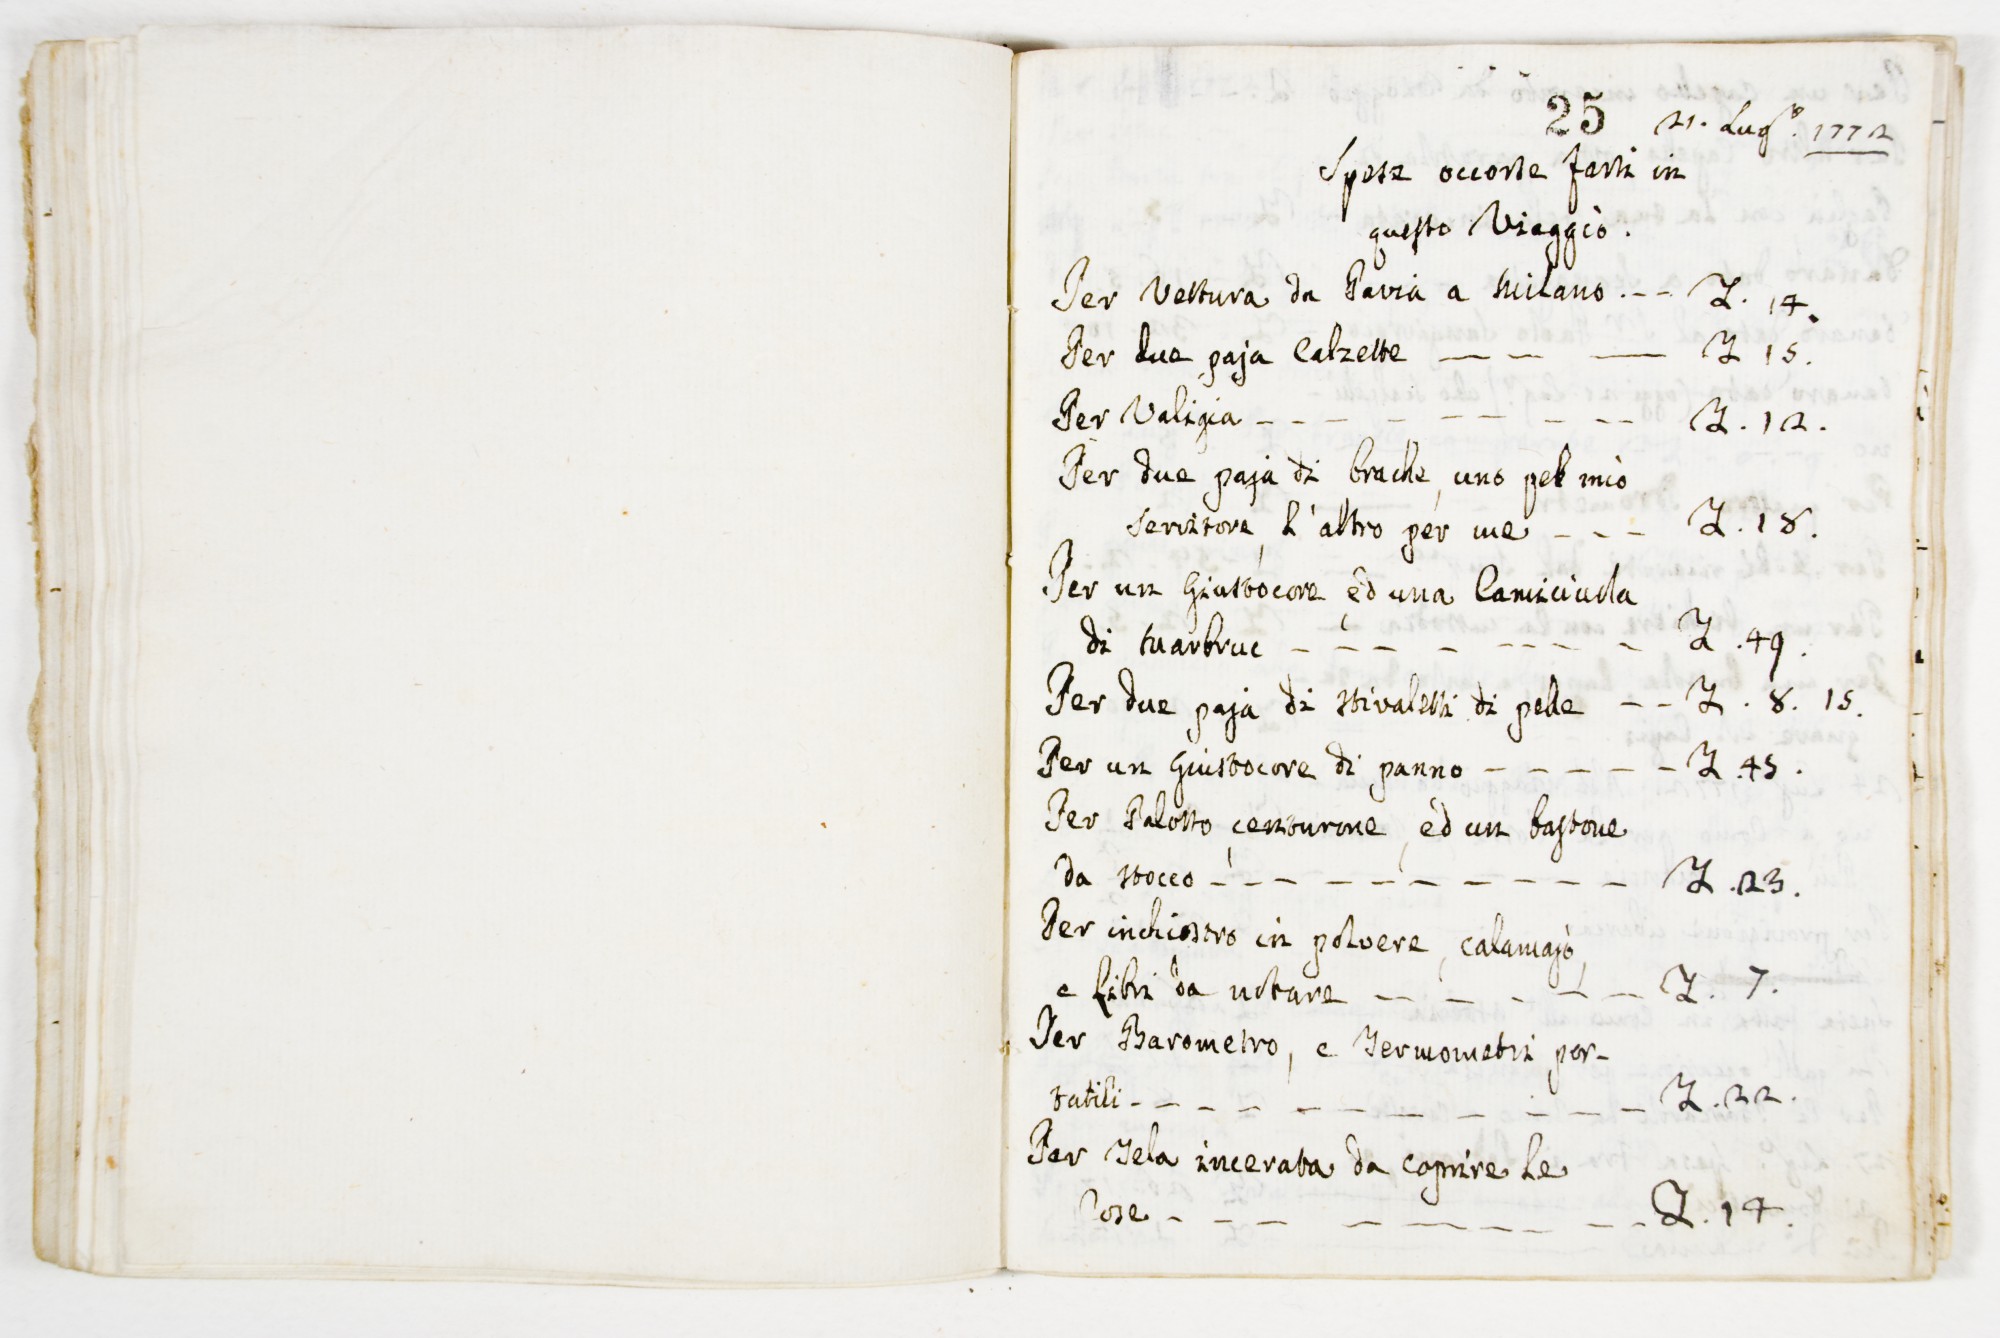 25 21. Lug.º 1772
Spese occorse farsi in
questo Viaggio.
Per Vettura da Pavia a Milano . -- L. 14.
Per due paja Calzette — — — L 15.
Per Valigia - - - - - - - - - L. 12.
Per due paja di brache, uno pel mio
servitore, l'altro per me - - - L. 18.
Per un Giustocore ed una Camiciuola
di - - - - - - - - L. 49.
Per due paja di stivaletti di pelle - - L. 8. 15.
Per un Giustocore di panno - - - - - L. 45.
Per Palosso, centurone, ed un bastone
da stocco - - - - - - - - - - L. 23.
Per inchiostro in polvere, calamajo,
e libri da notare - - - - - L. 7.
Per Barometro, e Termometri por-
tatili - - - - - - - - - - - L. 22.
Per Tela incerata da coprire le
Cose - - - - - - - - - - L. 14.